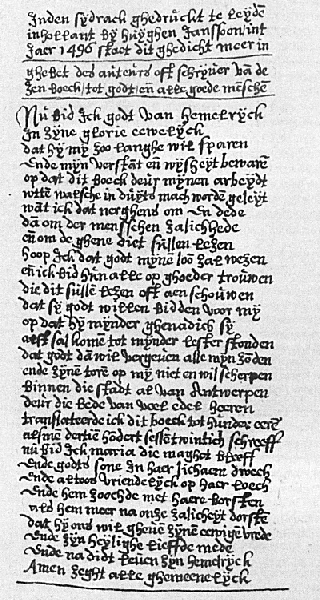 Inden sydrack ghedruckt te leydē
in hollant by huyghen Janssoen/int
Jaer 1496 staet dit ghedicht meer in
ghebet des auteurs oft schryver vā de
zen boeck/tot godt/en alle goede mēschē
Nu bid Ick godt van hemelryck
In zyne glorie eewelyck
dat hy my zoo langhe wil sparen
ende myn verstāt en wysheyt beware
op dat dit boeck deur mynen arbeydt
wtte walsche in duyts mach wordē geleyt
wāt ick dat nerghens om en dede
dā om der menschen zalichhede
en om de ghene diet sullen lezen
hoop Ick dat godt myne loō zal wezen
en ick bid hun alle op ghoeder trouwen
die dit sulle lezen oft aenschouwen
dat sy godt willen bidden voor my
op dat hy mynder ghenadich sy
als sal kome tot mynder lester stonden
dat godt dā wil vergeven alle myn zōden
ende zyne tore op my niet en wil scherpen
binnen die stadt al van Antwerpen
deur die bede van veel edel heeren
translateerde ick dit boeck tot hūnder eerē
als me dertiē hōdert sesse twintich schreeff
nu bid Ick maria die maghet bleeff
ende godts sone in haer lichaem droech
ende altoos vriendelyck op haer loech
ende hem zoochde met haere borsten
als hem meer na onze zalicheyt dorste
dat hy ons wil ghevē zynē eewigē vrede
ende zyn heylighe lieffde mede
ende na dit leven zyn hemelryck
Amen zeght alle ghemeenelyck